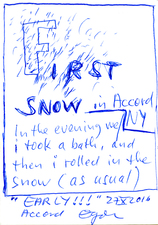 FIRST
SNOW in Accord
NY
In the evening we
i took a bath, and
then i rolled in the
snow (as usual)
"EARLY!!!" 27 X 2016
Accord